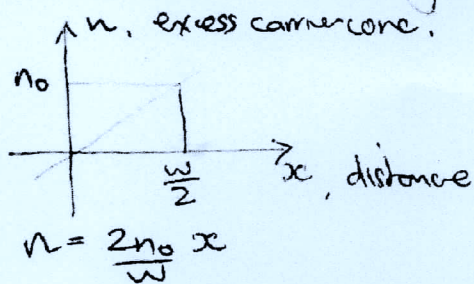 n, excess carrier conc.
n₀
w/2
x, distance
n = 2n₀/w x